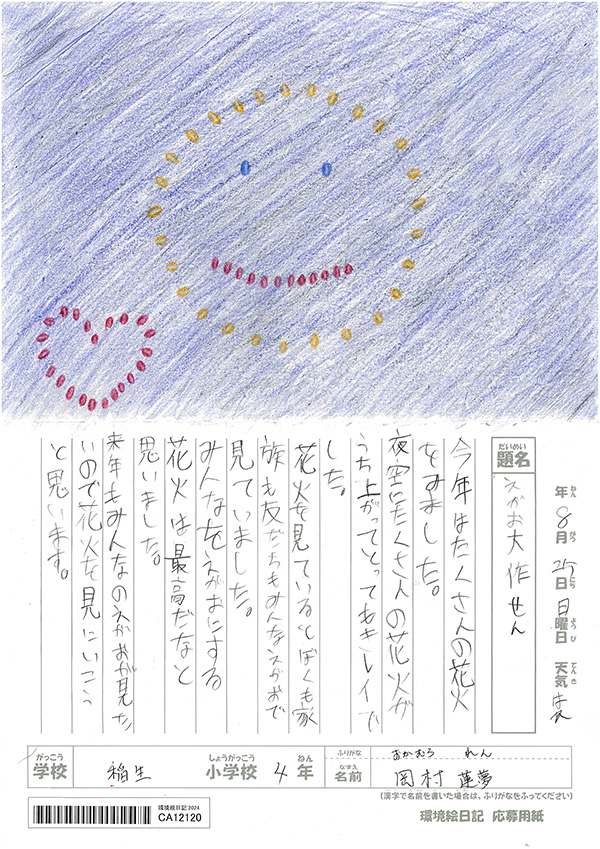 年 8月 25日 日曜日 天気 はれ
ねん がつ にち ようび てんき
だいめい
題名
えがお大作せん
今年はたくさんの花火
をみました。
夜空にたくさんの花火が
うち上がってとってもキレイで
した。
花火を見ているとぼくも家
族も友だちもみんなえがおで
見ていました。
みんなをえがおにする
花火は最高だなと
思いました。
来年もみんなのえがおが見た
いので花火を見にいこう
と思います。
がっこう しょうがっこう ねん
学校 稲生 小学校 4年
ふりがな おかむら れん
なまえ
名前 岡村 蓮夢
(漢字で名前を書いた場合は、ふりがなをふってください)
環境絵日記 2024
CA12120
環境絵日記 応募用紙